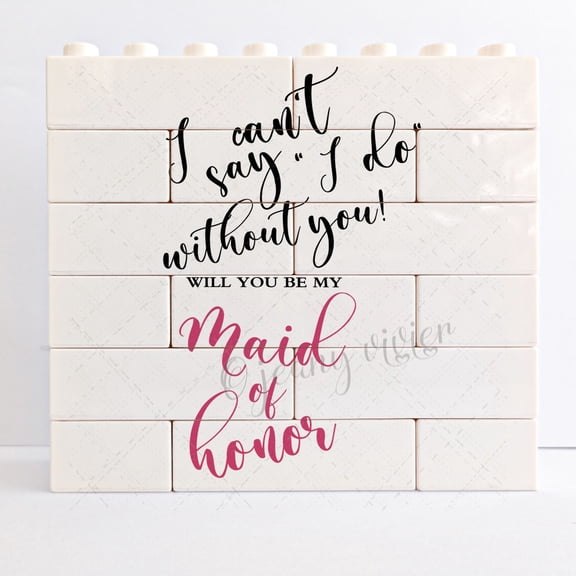 I can't
say "I do"
without you!
WILL YOU BE MY
Maid
of
honor
© jeany vivien